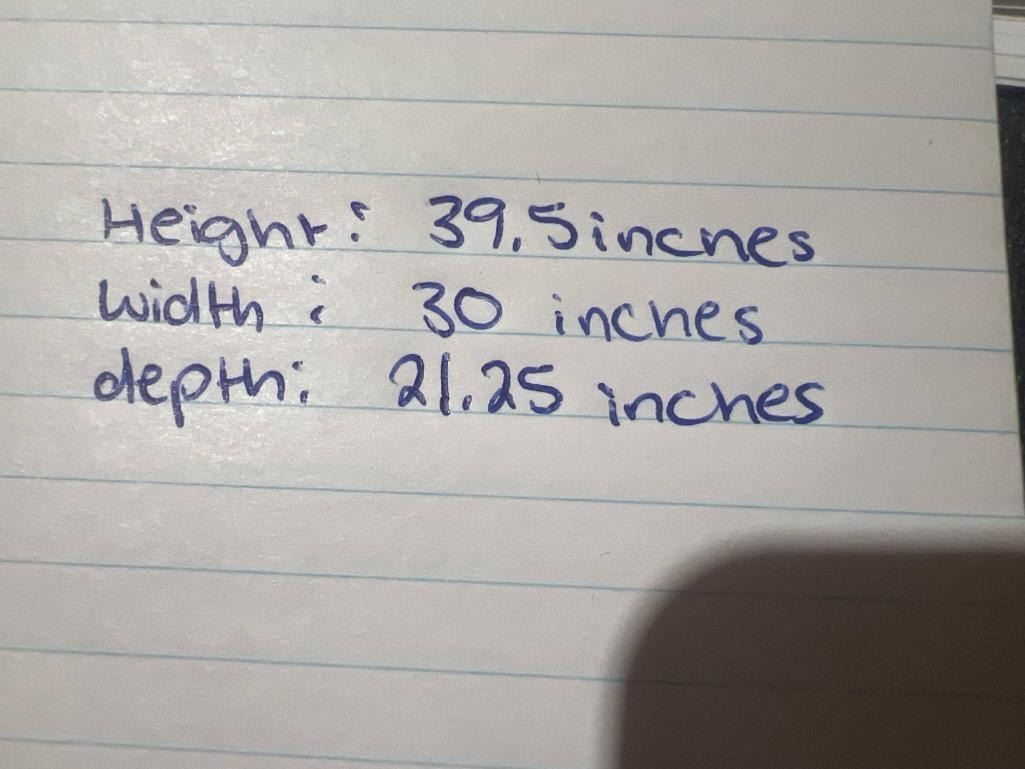 Height: 39.5 inches
width: 30 inches
depth: 21.25 inches